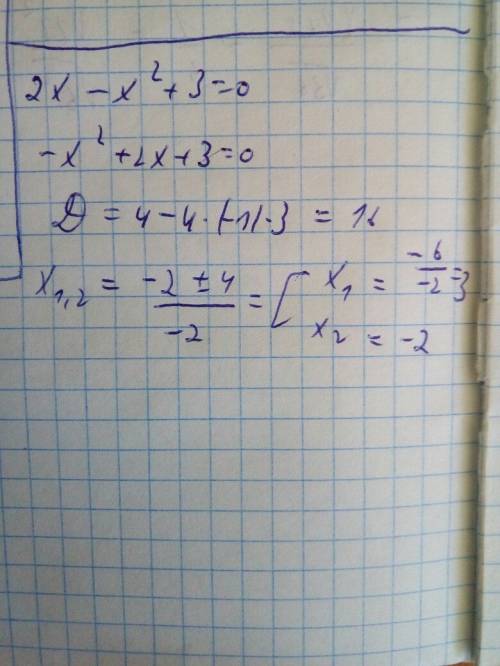 2x - x² + 3 = 0
-x² + 2x + 3 = 0
D = 4 - 4 · (-1) · 3 = 16
x₁,₂ = (-2 ± 4)/(-2) = [ x₁ = -6/-2 = 3
x₂ = -2